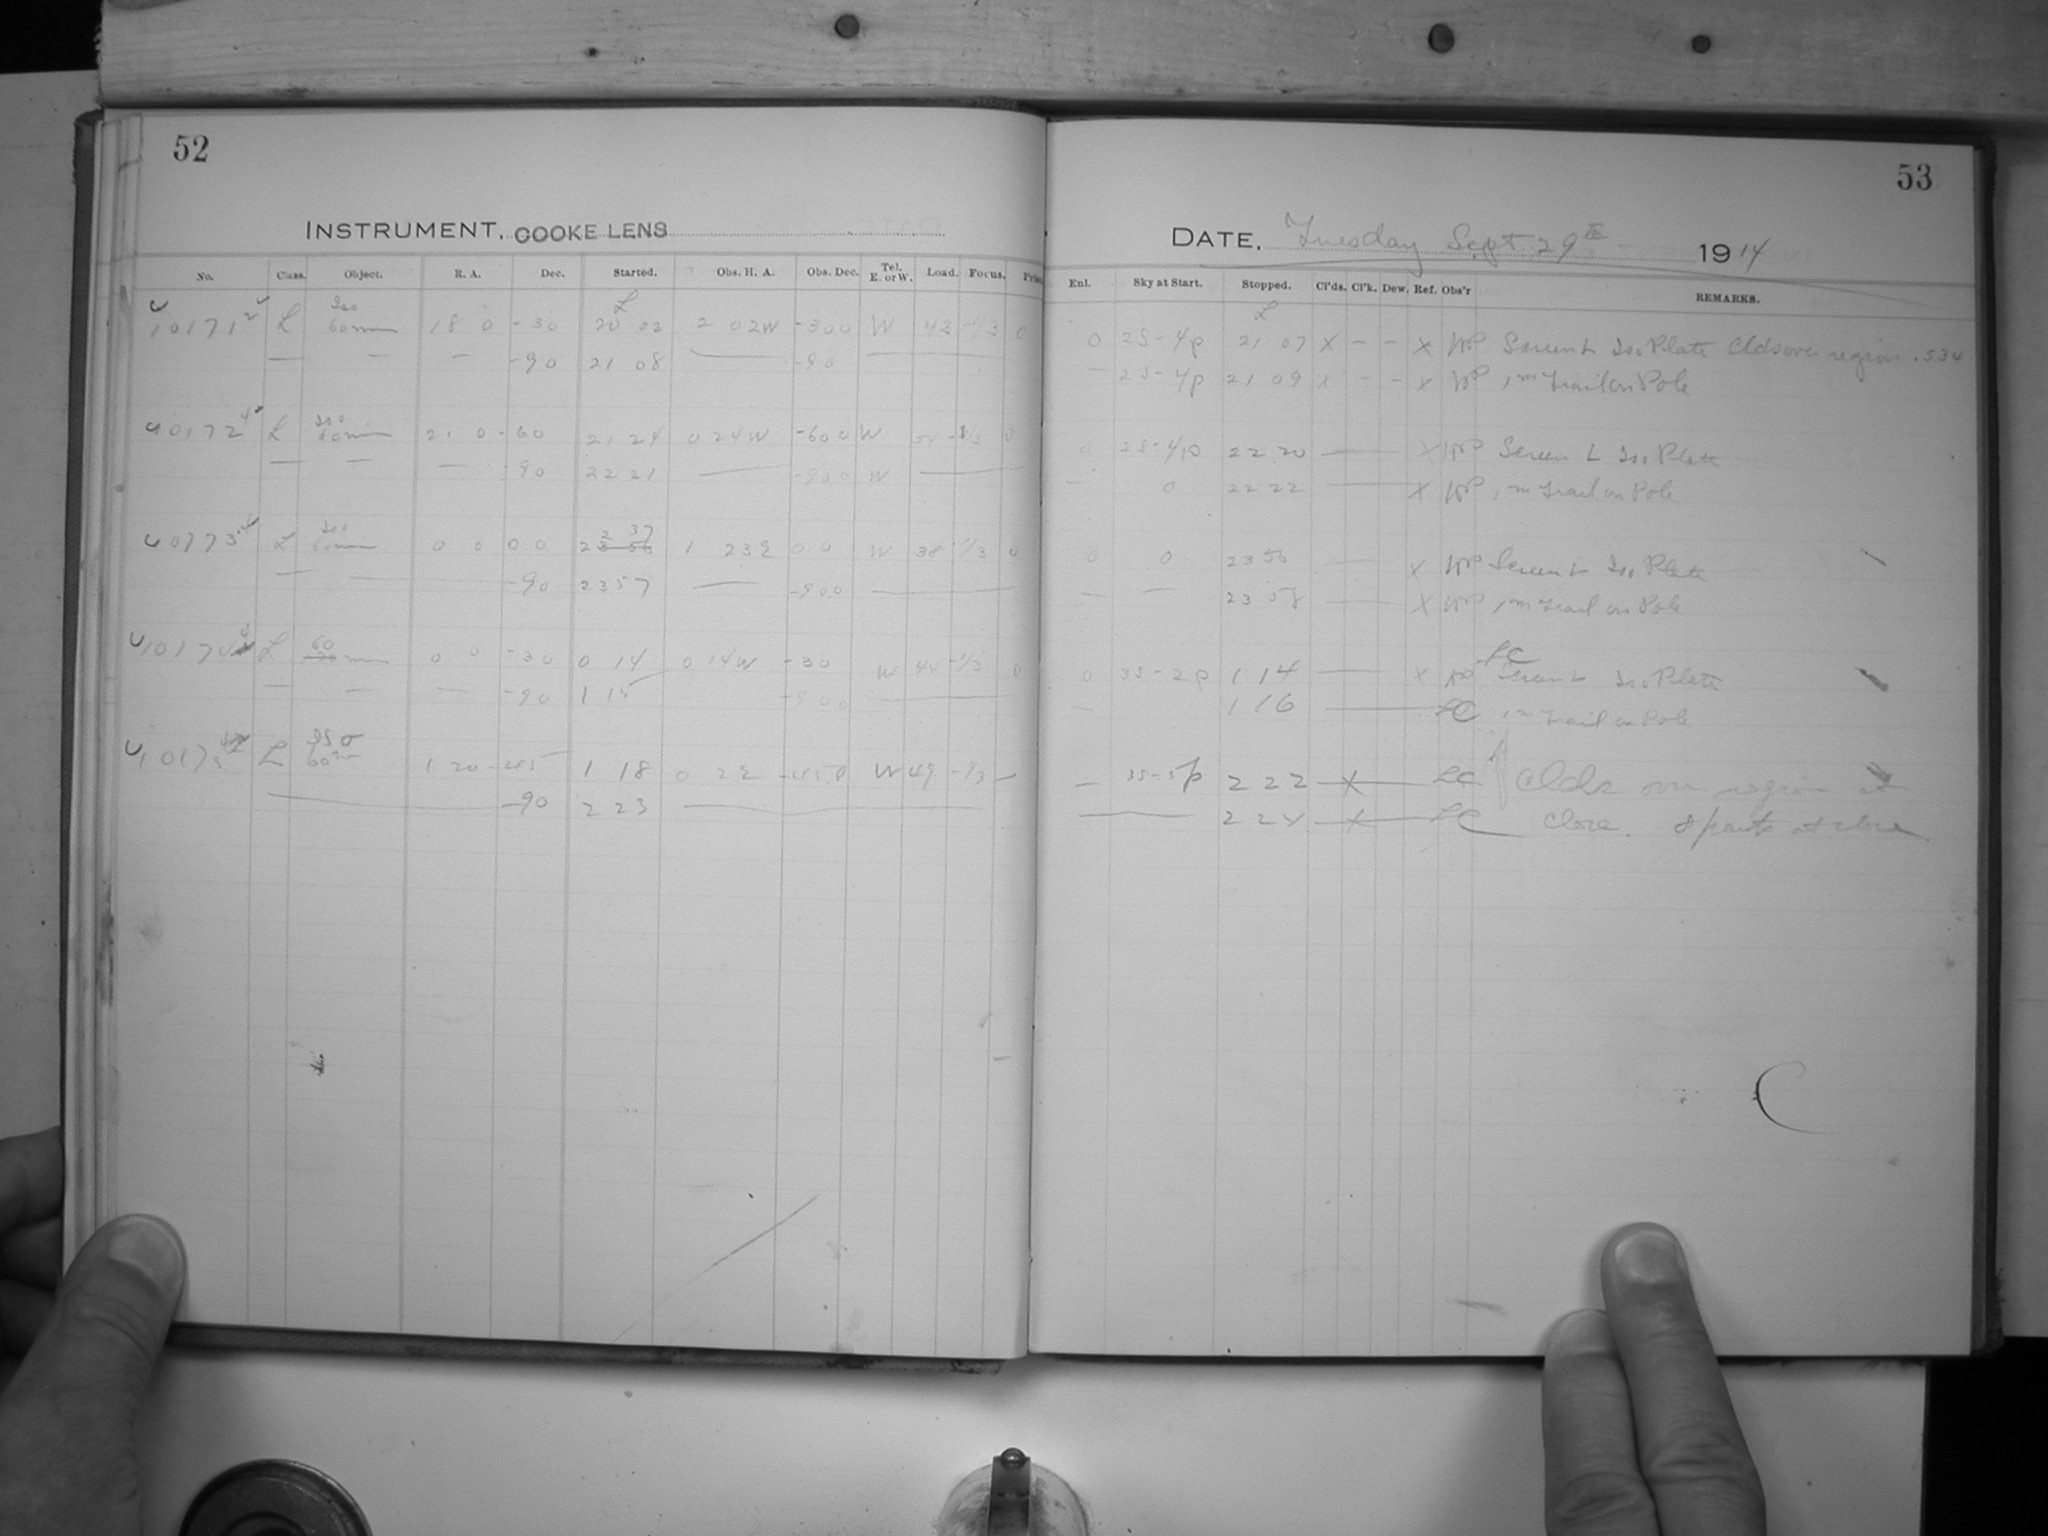 52
INSTRUMENT. COOKE LENS
No. Class. Object. R. A. Dec. Started. Obs. H. A. Obs. Dec. Tel. E. or W. Load. Focus.
L
10171 L Iso 60min 18 0 -30 20 02 2 02W -300 W 43 -1/3 0
-90 21 08 -90
10172 L Iso 60min 21 0 -60 21 24 0 24W -600 W -1/3 0
-90 22 21 -900 W
L Iso 60min 0 0 00 1 23E 00 W 38 -1/3 0
-90 2357 -900
10174 L 60 min 0 0 -30 0 14 0 14W -30 W 44 -1/3 0
-90 1 15 -900
10175 L Iso 60m 1 20 -45 1 18 0 2E -450 W 49 -1/3
-90 2 23
53
DATE. Tuesday Sept 29th 1914
Enl. Sky at Start. Stopped. Cl'ds. Cl'k. Dew. Ref. Obs'r REMARKS.
L
0 2S-4p 21 07 X - - X Screen L Iso Plate Clds over region .534
- 2S-4p 21 09 x - - x 1m Trail on Pole
0 2S-4p 22 20 X Screen L Iso Plate
- 0 22 22 X 1m Trail on Pole
0 0 23 56 X Screen L Iso Plate
23 58 X 1m Trail on Pole
LC
0 3S-2p 1 14 X Screen L Iso Plate
1 16 LC 1m Trail on Pole
3S-5p 2 22 X LC Clds over region at
2 24 X LC close. at close